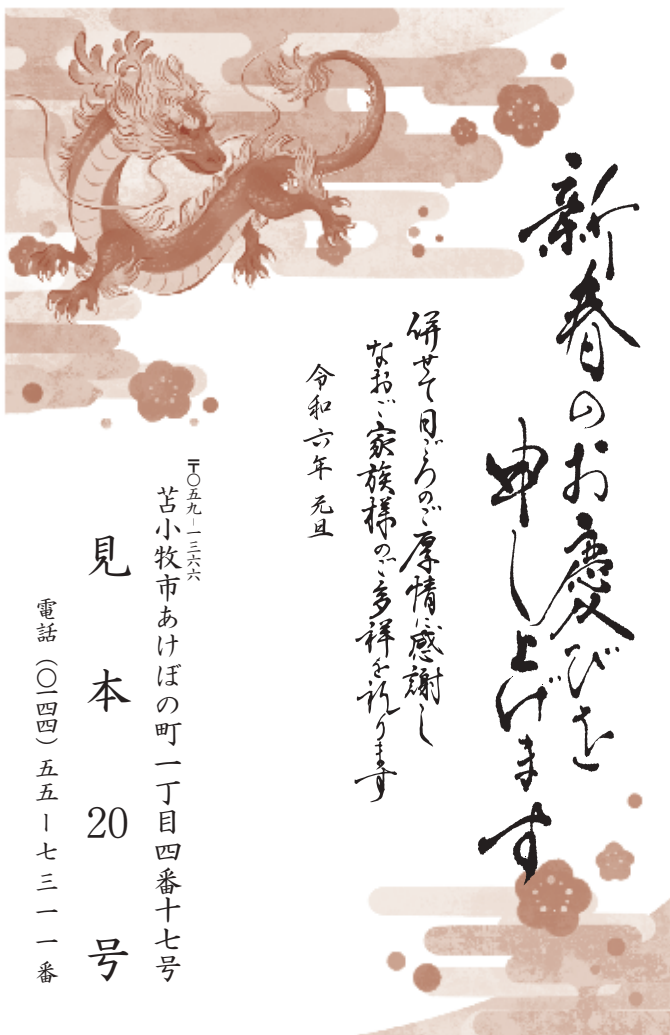 新春のお慶びを
申し上げます
併せて日ごろのご厚情に感謝し
なおご家族様のご多祥を祈ります
令和六年 元旦
〒〇五九－一三六六
苫小牧市あけぼの町一丁目四番十七号
見本20号
電話（〇一四四）五五－七三一一番